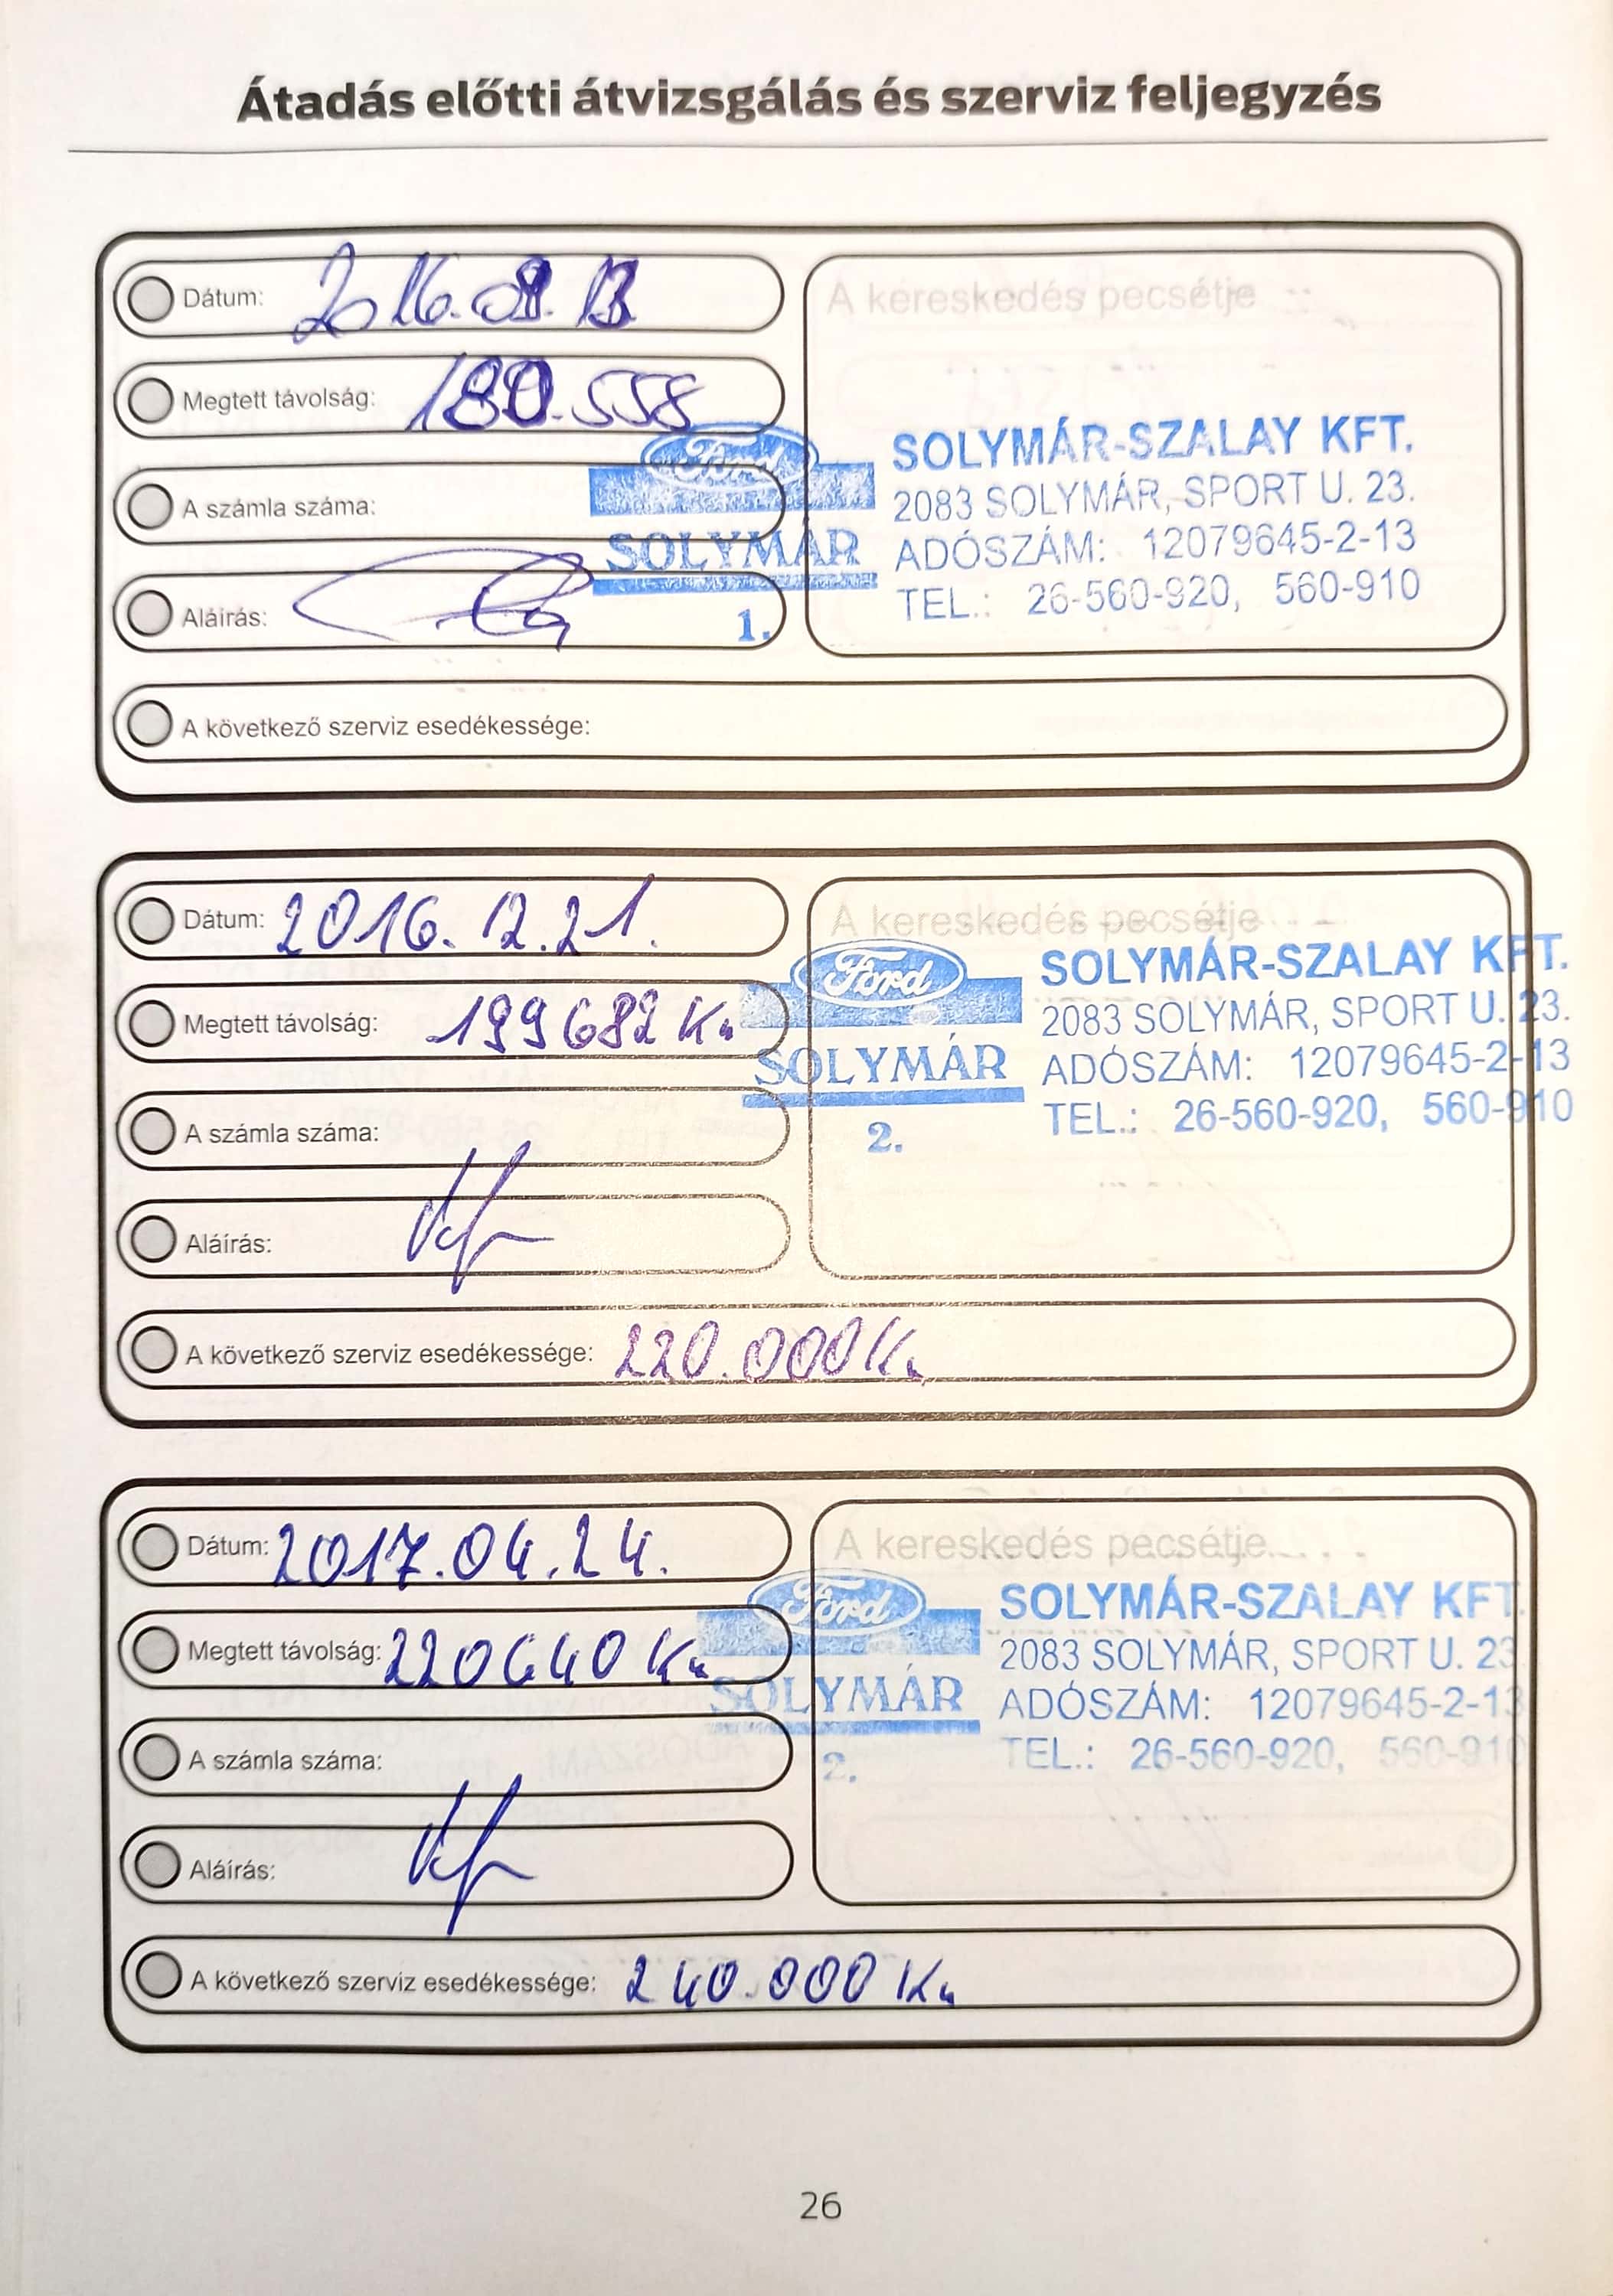 Átadás előtti átvizsgálás és szerviz feljegyzés
Dátum: 2016.09.13
A kereskedés pecsétje
Megtett távolság: 180.558
A számla száma:
Aláírás:
Ford
SOLYMÁR
1.
SOLYMÁR-SZALAY KFT.
2083 SOLYMÁR, SPORT U. 23.
ADÓSZÁM: 12079645-2-13
TEL.: 26-560-920, 560-910
A következő szerviz esedékessége:
Dátum: 2016.12.21.
A kereskedés pecsétje
Megtett távolság: 199682 Km
A számla száma:
Aláírás:
Ford
SOLYMÁR
2.
SOLYMÁR-SZALAY KFT.
2083 SOLYMÁR, SPORT U. 23.
ADÓSZÁM: 12079645-2-13
TEL.: 26-560-920, 560-910
A következő szerviz esedékessége: 220.000 Km
Dátum: 2017.04.24.
A kereskedés pecsétje
Megtett távolság: 220640 Km
A számla száma:
Aláírás:
Ford
SOLYMÁR
2.
SOLYMÁR-SZALAY KFT.
2083 SOLYMÁR, SPORT U. 23
ADÓSZÁM: 12079645-2-13
TEL.: 26-560-920, 560-910
A következő szerviz esedékessége: 240.000 Km
26